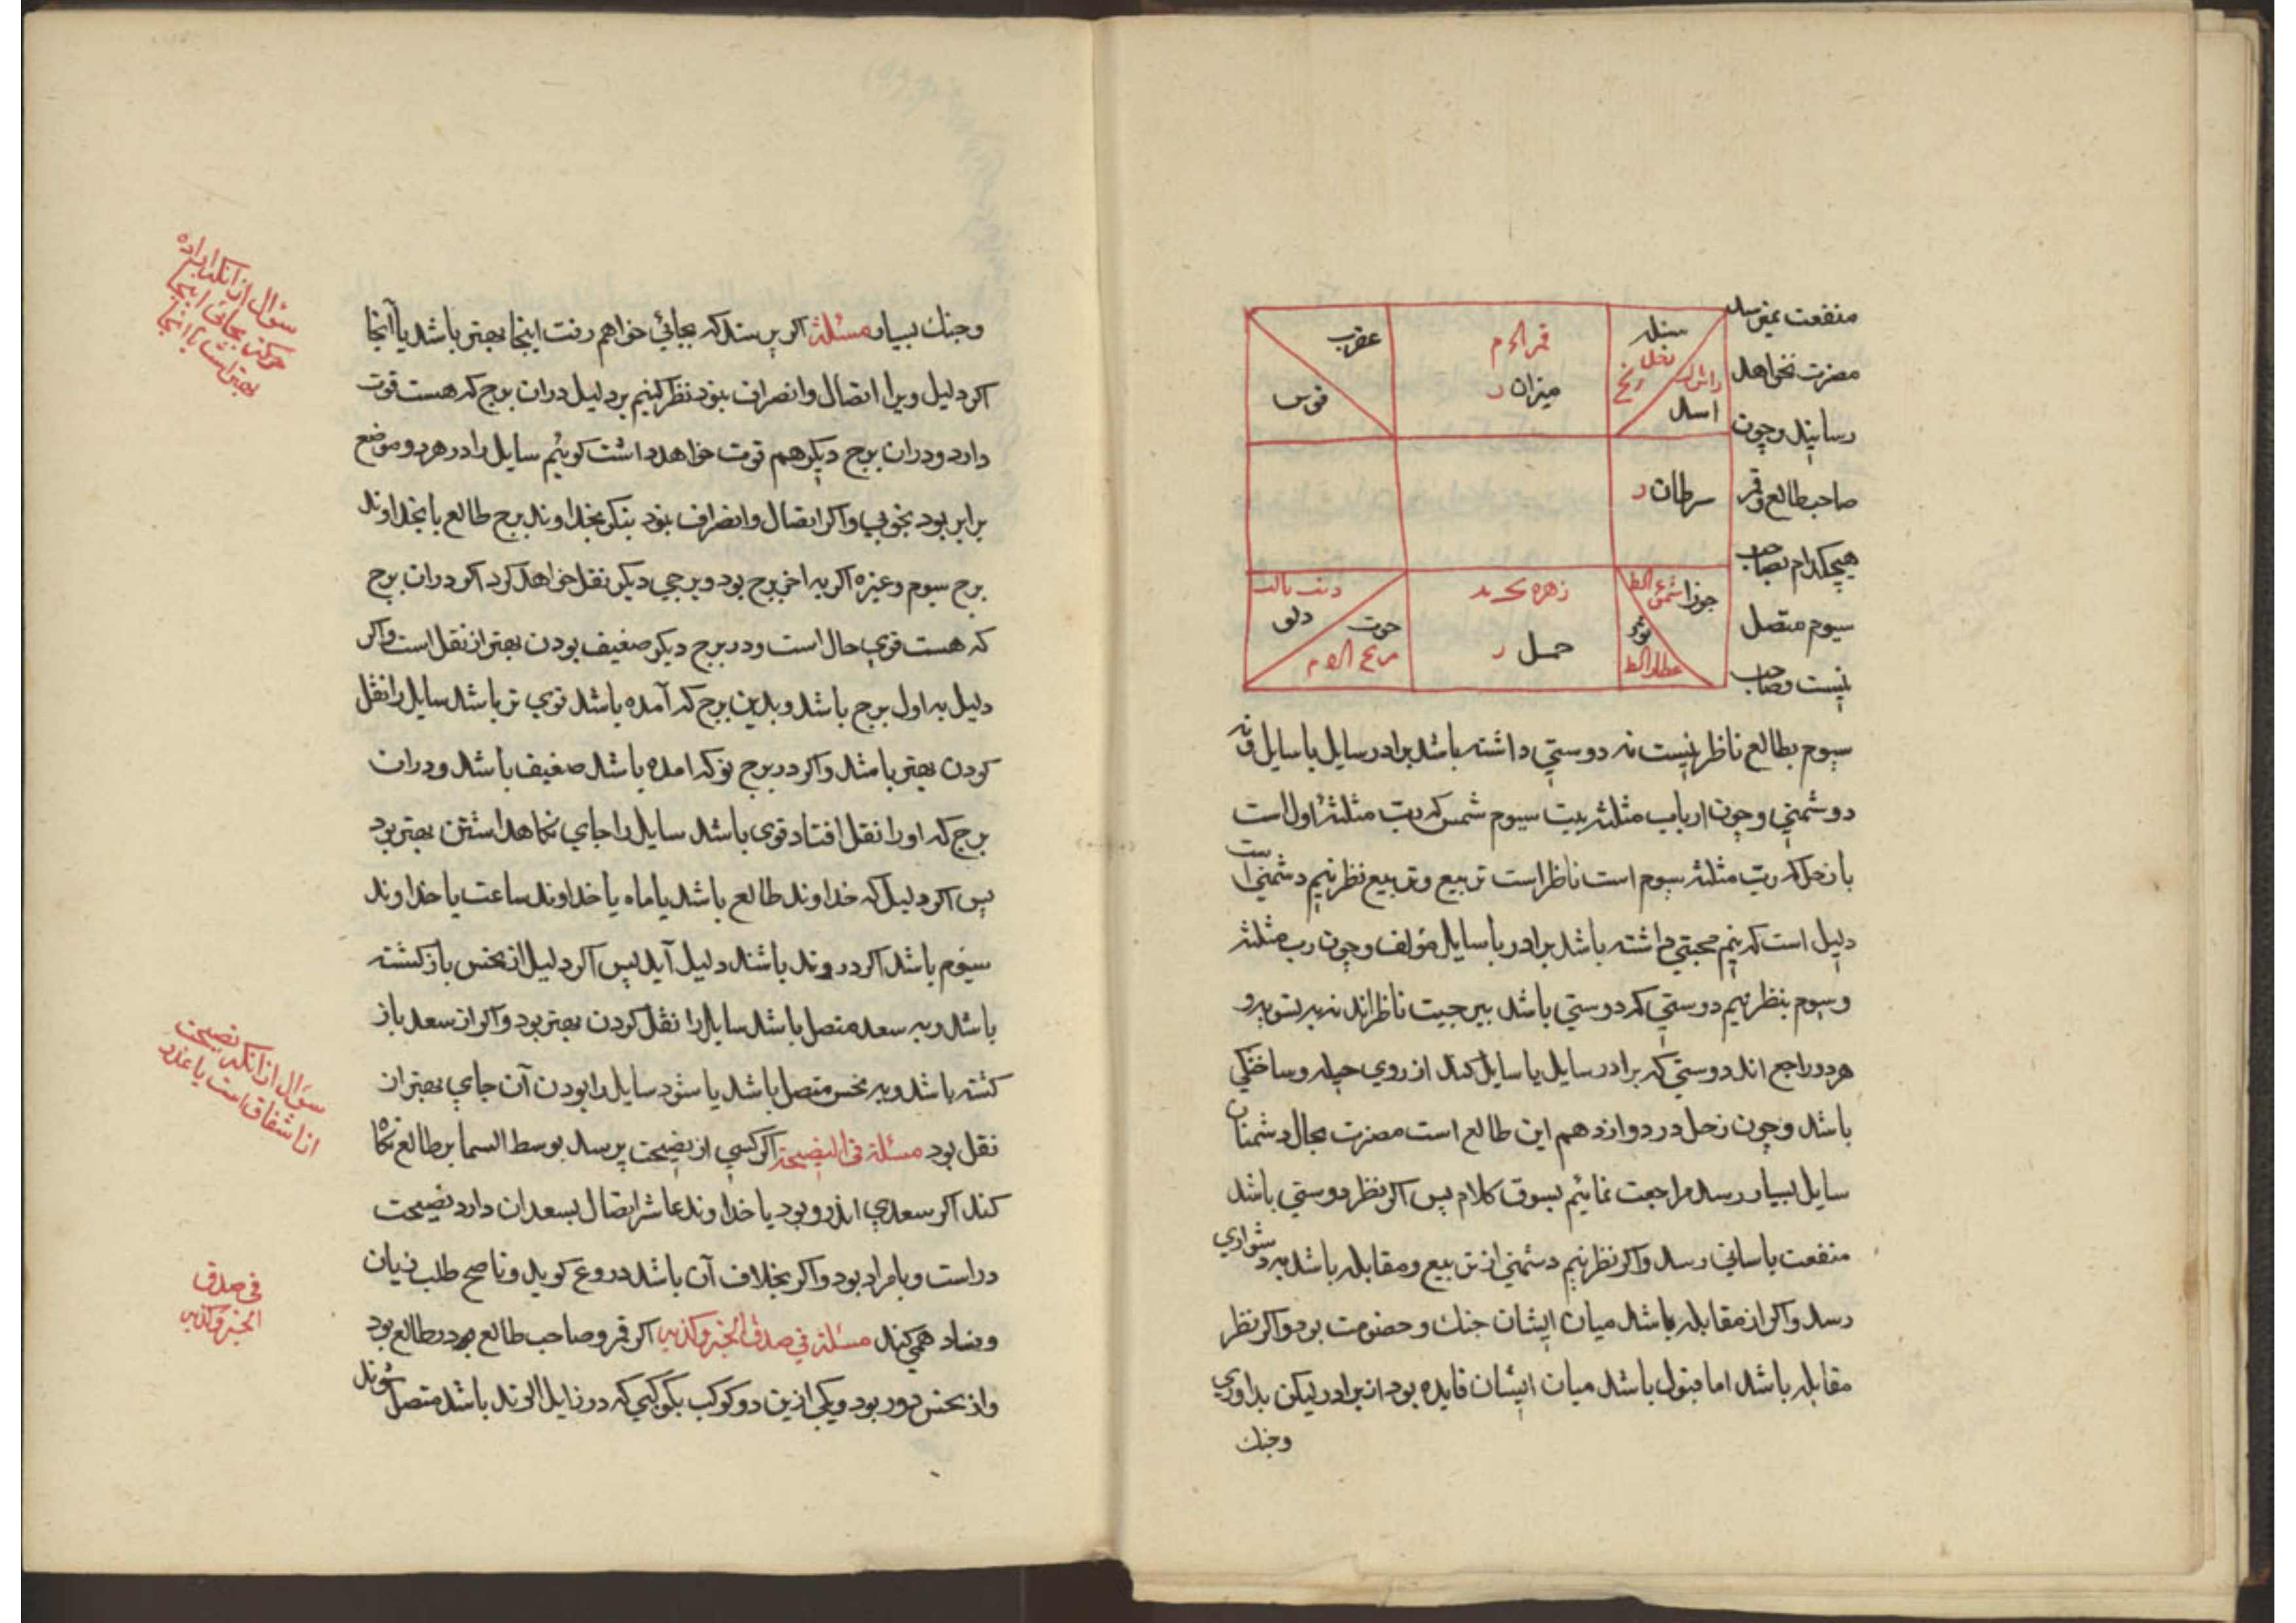 منفعت بغیر رسد
مضرت نخواهد
رسانید و چون
صاحب طالع و قمر
هیچکدام بصاحب
سیوم متصل
نیست و صاحب
سنبله
زحل
راس
اسد
میزان
عقرب
قوس
سرطان
جوزا
شمس
ثور
عطارد
زهره
حمل
حوت
مریخ
دلو
ذنب
سیوم بطالع ناظر نیست نه دوستی داشته باشد برادر سایل با سایل و نه
دوشمنی و چون ارباب مثلثه بیت سیوم شمس که رب مثلثهٔ اول است
با زحل که رب مثلثه سیوم است ناظر است تربیع و تربیع نظر نیم دشمنی است
دلیل است که نیم محبتی داشته باشد برادر با سایل مؤلف و چون رب مثلثه
و سیوم بنظر نیم دوستی که دوستی باشد ناظراند
هر دو راجع اند دوستی که برادر سایل با سایل کند از روی حیله و ساختگی
باشد و چون زحل در دوازدهم این طالع است مضرت بحال دشمنان
سایل بسیار رسد مراجعت نمائیم بسوق کلام پس اکر نظر دوستی باشد
منفعت باسانی رسد و اکر نظر نیم دشمنی از تربیع و مقابله باشد به دشواری
رسد و اکر از مقابله باشد میان ایشان جنك و خصومت بود و اکر نظر
مقابله باشد اما قبول باشد میان ایشان فایده بود از برادر لیکن بداوری
وجنك
وجنك بسیار مسئلة اکر پرسند که بجائی خواهم رفت اینجا بهتر باشد یا آنجا
اکر دلیل ویرا اتصال و انصراف نبود نظر کنیم بر دلیل در ان برج که هست قوت
دارد و دران برج دیکر هم قوت خواهد داشت کوئیم سایل را در هر دو موضع
برابر بود بخوبی و اکر اتصال و انصراف نبود بنکر بخداوند برج طالع یا بخداوند
برج سیوم و غیره اکر به اخر برج بود و ببرجی دیکر نقل خواهد کرد اکر دران برج
که هست قوی حال است و در برج دیکر ضعیف بودن بهتر از نقل است و اکر
دلیل به اول برج باشد و بدین برج که آمده باشد قوی تر باشد سایل را نقل
کردن بهتر باشد و اکر در برج نو که امده باشد ضعیف باشد و دران
برج که او را نقل افتاد قوی باشد سایل را جای نکاهداشتن بهتر بود
پس اکر دلیل که خداوند طالع باشد یا ماه یا خداوند ساعت یا خداوند
سیوم باشد اکر در وتد باشند دلیل آید پس اکر دلیل از نحس باز کشته
باشد و به سعد متصل باشد سایل را نقل کردن بهتر بود و اکر از سعد باز
کشته باشد و به نحس متصل باشد یا شود سایل را بودن آن جای بهتر از
نقل بود مسئلة فی النصیحة اکر کسی از نصیحت پرسد بوسط السما بر طالع نکاه
کند اکر سعدی اندرو بود یا خداوند عاشر اتصال بسعد ان دارد نصیحت
دراست و بامراد بود و اکر بخلاف آن باشد دروغ کوید و ناصح طلب زیان
و فساد همی کند مسئلة فی صدق الخبر و کذبه اکر قمر و صاحب طالع بود در طالع بود
و از نحس دور بود و یکی ازین دو کوکب بکوکبی که در زایل الوتد باشد متصل شوند
سؤال از انکه اراده
حرکت بجائی اینجا
بهتر است یا انجا
سؤال از انکه نصیحت
از اشفاق است یا غدر
فی صدق
الخبر و کذبه